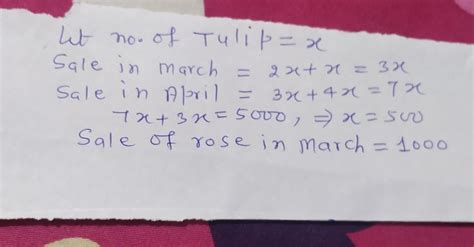 Let no. of Tulip = x
Sale in march = 2x + x = 3x
Sale in April = 3x + 4x = 7x
7x + 3x = 5000, ⇒ x = 500
Sale of rose in march = 1000